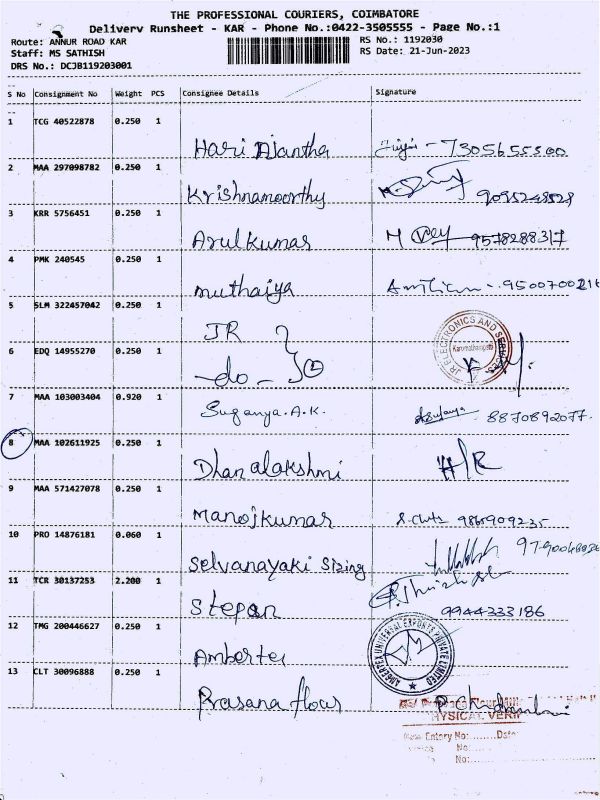 THE PROFESSIONAL COURIERS, COIMBATORE
Delivery Runsheet - KAR - Phone No.:0422-3505555 - Page No.:1
Route: ANNUR ROAD KAR
RS No.: 1192030
Staff: MS SATHISH
RS Date: 21-Jun-2023
DRS No.: DCJB119203001
S No Consignment No Weight PCS Consignee Details Signature
1 TCG 40522878 0.250 1
Hari Ajantha - 7305655300
2 MAA 297098782 0.250 1
Krishnamoorthy 9095248528
3 KRR 5756451 0.250 1
Arulkumar M 9578288317
4 PMK 240545 0.250 1
muthaiya - 9500700216
5 SLM 322457042 0.250 1
JR
JR ELECTRONICS AND SERVICES
6 EDQ 14955270 0.250 1
-do- 2
7 MAA 103003404 0.920 1
Suganya.A.K. 8870892077.
8 MAA 102611925 0.250 1
Dhanalakshmi H/R
9 MAA 571427078 0.250 1
Manojkumar 9865909235
10 PRO 14876181 0.060 1
Selvanayaki Sizing
11 TCR 30137253 2.200 1
Stepan 9944333186
12 TMG 200446627 0.250 1
Ambertex
UNIVERSAL EXPORTS PRIVATE LIMITED
13 CLT 30096888 0.250 1
Prasana flour
PHYSICAL VERIF
Entry No:....... Date
No:
No: